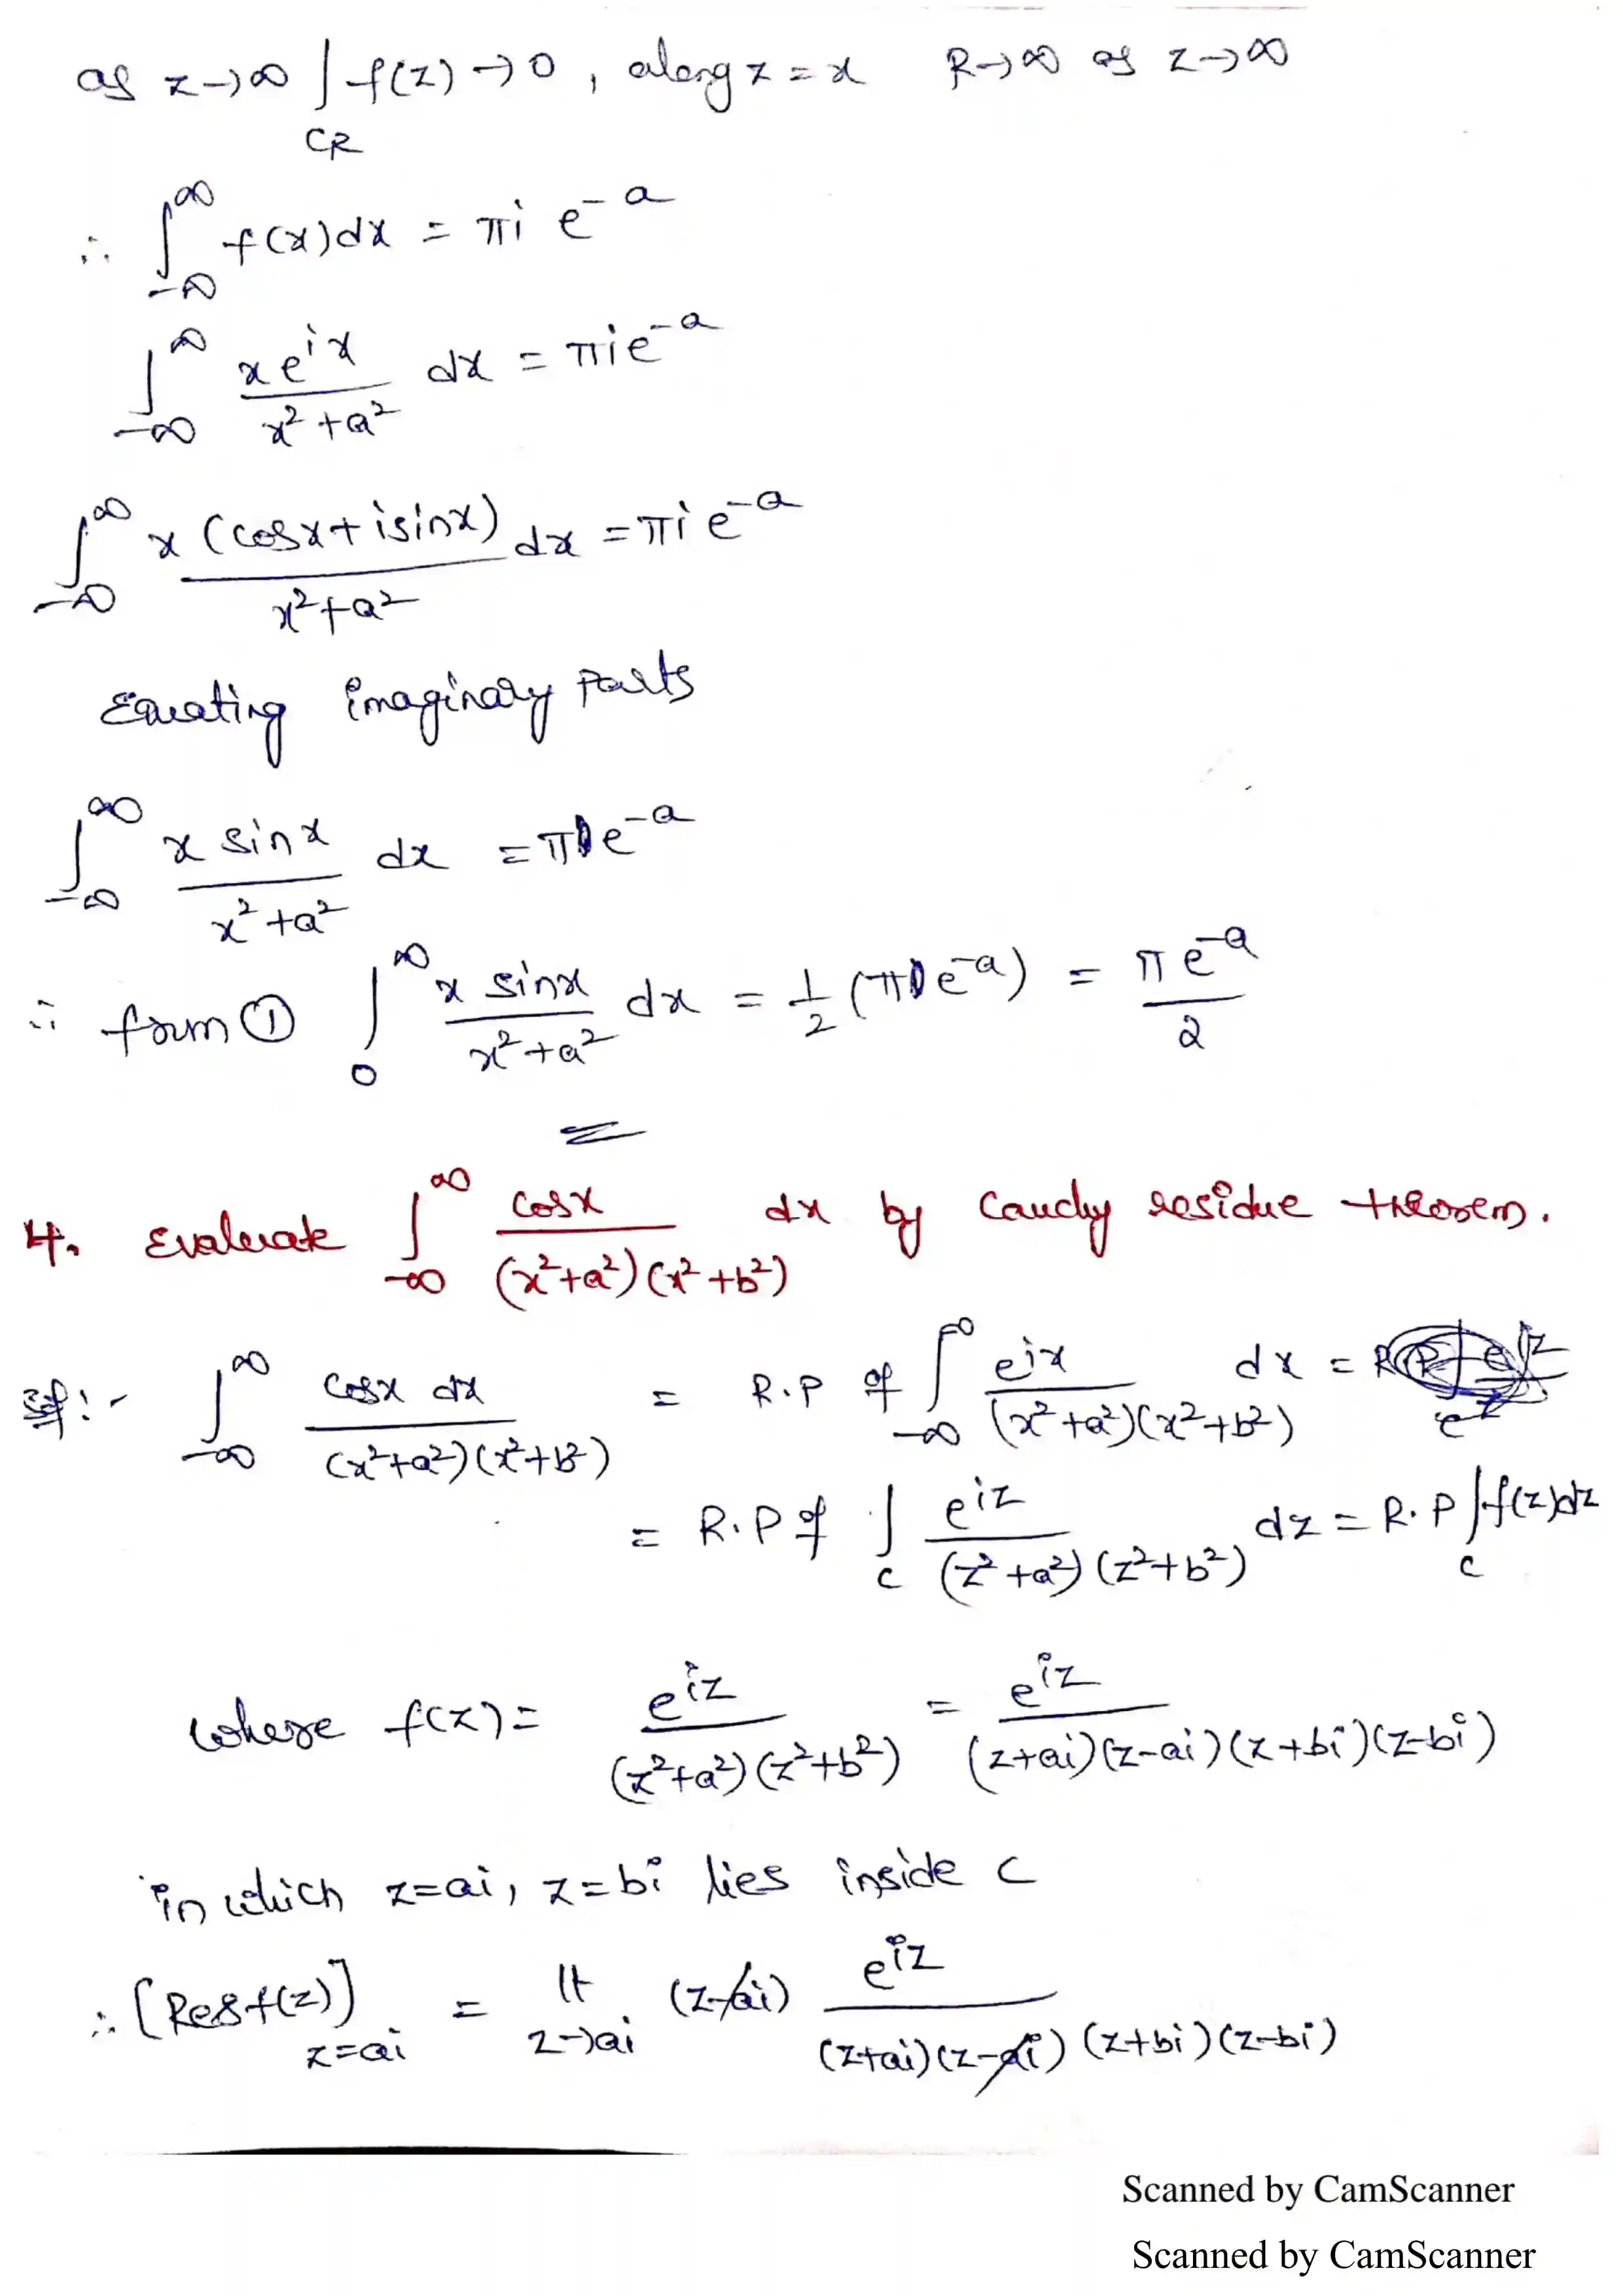 as z→∞ ∫_CR f(z)→0, along z=x R→∞ as z→∞
∴ ∫_{-∞}^{∞} f(x)dx = πi e^{-a}
∫_{-∞}^{∞} xe^{ix}/(x²+a²) dx = πie^{-a}
∫_{-∞}^{∞} x(cosx+isinx)/(x²+a²) dx = πie^{-a}
Equating imaginary parts
∫_{-∞}^{∞} x sinx/(x²+a²) dx = πe^{-a}
∴ form ① ∫_0^{∞} x sinx/(x²+a²) dx = 1/2 (πe^{-a}) = πe^{-a}/2
4. Evaluate ∫_{-∞}^{∞} cosx/((x²+a²)(x²+b²)) dx by Cauchy residue theorem.
Sol:- ∫_{-∞}^{∞} cosx dx/((x²+a²)(x²+b²)) = R.P of ∫_{-∞}^{∞} e^{ix}/((x²+a²)(x²+b²)) dx =
= R.P of ∫_C e^{iz}/((z²+a²)(z²+b²)) dz = R.P ∫_C f(z)dz
where f(z) = e^{iz}/((z²+a²)(z²+b²)) = e^{iz}/((z+ai)(z-ai)(z+bi)(z-bi))
in which z=ai, z=bi lies inside C
∴ [Resf(z)]_{z=ai} = lt_{z→ai} (z-ai) e^{iz}/((z+ai)(z-ai)(z+bi)(z-bi))
Scanned by CamScanner
Scanned by CamScanner